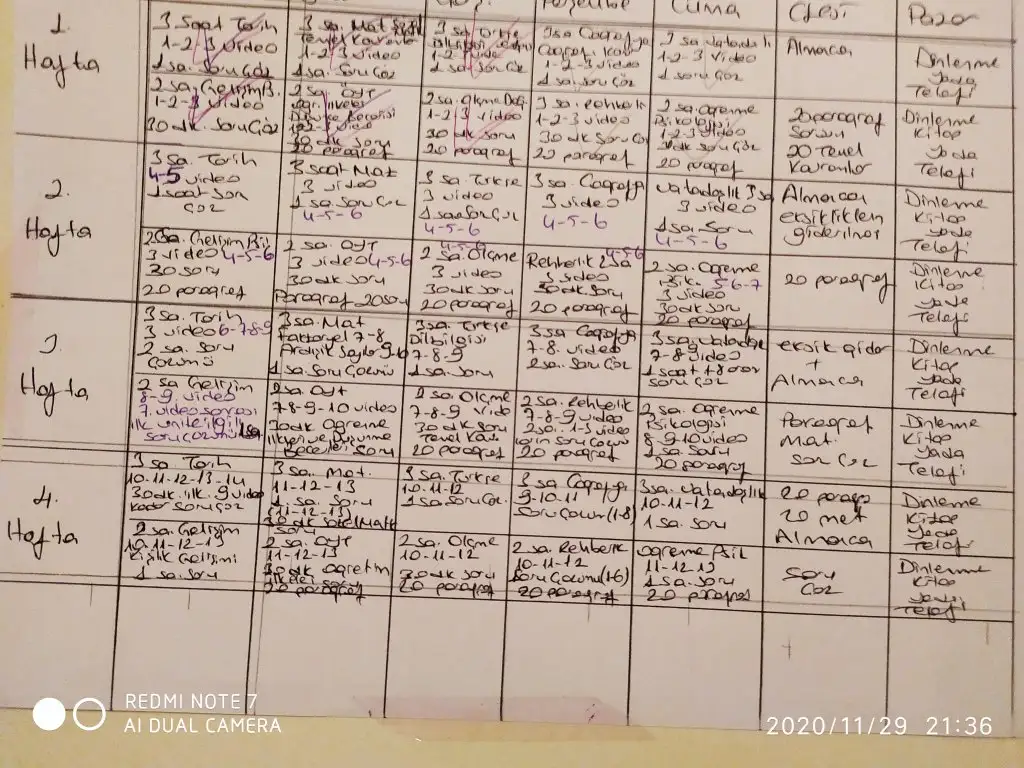 Perşembe
Cuma
Ctesi
Pazar
1.
Hafta
3 Saat Tarih
1-2-3 video
1 sa. Soru Çöz
3 sa. Mat
1-2-3 video
1 sa. Soru Çöz
3 sa. Türkçe
1-2-3 video
1 sa. Soru Çöz
3 sa Coğrafya
1-2-3 video
1 sa. Soru Çöz
3 sa. Vatandaşlı
1-2-3 video
1 sa. Soru Çöz
Almaca
Dinlenme
Yada
Telefi
2 sa. Gelişim B.
1-2-3 video
30 dk. Soru Çöz
2 sa. ÖYT
1-2-3 video
30 dk soru
20 paragraf
2 sa. Ölçme Değ.
1-2-3 video
30 dk soru
20 paragraf
2 sa. Rehberlik
1-2-3 video
30 dk Soru Çöz
20 paragraf
2 sa. Öğrenme
Psikolojisi
1-2-3 video
30 dk Soru Çöz
20 paragraf
20 paragraf
Sorusu
20 Temel
Kavramlar
Dinlenme
Kitap
Yada
Telafi
2.
Hafta
3 sa. Tarih
4-5 video
1 saat Soru
Çöz
3 saat Mat
3 video
1 sa. Soru Çöz
4-5-6
3 sa. Türkçe
3 video
1 saat Soru Çöz
4-5-6
3 sa. Coğrafya
3 video
4-5-6
Vatandaşlık 3 sa
3 video
1 sa. Soru
4-5-6
Almaca
eksiklikleri
giderilmesi
Dinlenme
Kitap
Yada
Telafi
2 sa. Gelişim Psi
3 video 4-5-6
30 soru
20 paragraf
2 sa. ÖYT
3 video 4-5-6
30 dk soru
Paragraf 20 soru
4-5-6
2 sa. Ölçme
3 video
30 dk soru
20 paragraf
4-5-6
Rehberlik 2 sa
3 video
30 dk soru
20 paragraf
2 sa. Öğrenme
Psik. 5-6-7
3 video
30 dk soru
20 paragraf
20 paragraf
Dinlenme
Kitap
Yada
Telafi
3.
Hafta
3 sa. Tarih
3 video 6-7-8-9
2 sa. soru
Çözümü
3 sa. Mat
Faktöryel 7-8
Ardışık Sayılar 9-10
1 sa. Soru Çözümü
3 sa. Türkçe
Dilbilgisi
7-8-9
1 sa. Soru
3 sa Coğrafya
7-8. video
2 sa. Soru Çöz
3 sa. Vatandaş
7-8-9 video
soru Çöz
eksik gider
+
Almaca
Dinlenme
Kitap
Yada
Telafi
2 sa Gelişim
8-9. video
7. video sonrası
ilk ünite ilgili
soru çözümü 1 sa
2 sa. ÖYT
7-8-9-10 video
30 dk Öğrenme
ilkeri ve Düşünme
Becerileri Soru
2 sa. Ölçme
7-8-9 video
30 dk soru
Temel Kav.
20 paragraf
2 sa. Rehberlik
7-8-9 video
2 sa. 1-3 video
için soru çözümü
20 paragraf
2 sa. Öğrenme
Psikolojisi
8-9-10 video
1 sa. Soru
20 paragraf
Paragraf
Mat.
Soru Çöz
Dinlenme
Kitap
Yada
Telafi
4.
Hafta
3 sa. Tarih
10-11-12-13-14
30 dk. ilk. 9 video
kadar soru çöz
3 sa. Mat.
11-12-13
1 sa. Soru
(11-12-13)
30 dk sözel Mat
soru
3 sa. Türkçe
10-11-12
1 sa. Soru Çöz.
3 sa Coğrafya
9-10-11
Soru Çözümü (1-8)
3 sa. Vatandaşlık
10-11-12
1 sa. soru
20 paragraf
20 mat
Almaca
Dinlenme
Kitap
Yada
Telafi
2 sa. Gelişim
10-11-12-13
Kişilik Gelişimi
1 sa. soru
2 sa. ÖYT
11-12-13
30 dk öğretim
ilkeleri soru
20 paragraf
2 sa. Ölçme
10-11-12
30 dk soru
20 paragraf
2 sa. Rehberlik
10-11-12
Soru Çözümü (1-6)
20 paragraf
öğrenme Psik
11-12-13
1 sa. soru
20 paragraf
Soru
Çöz
Dinlenme
Kitap
Yada
Telafi
REDMI NOTE 7
AI DUAL CAMERA
2020/11/29 21:36